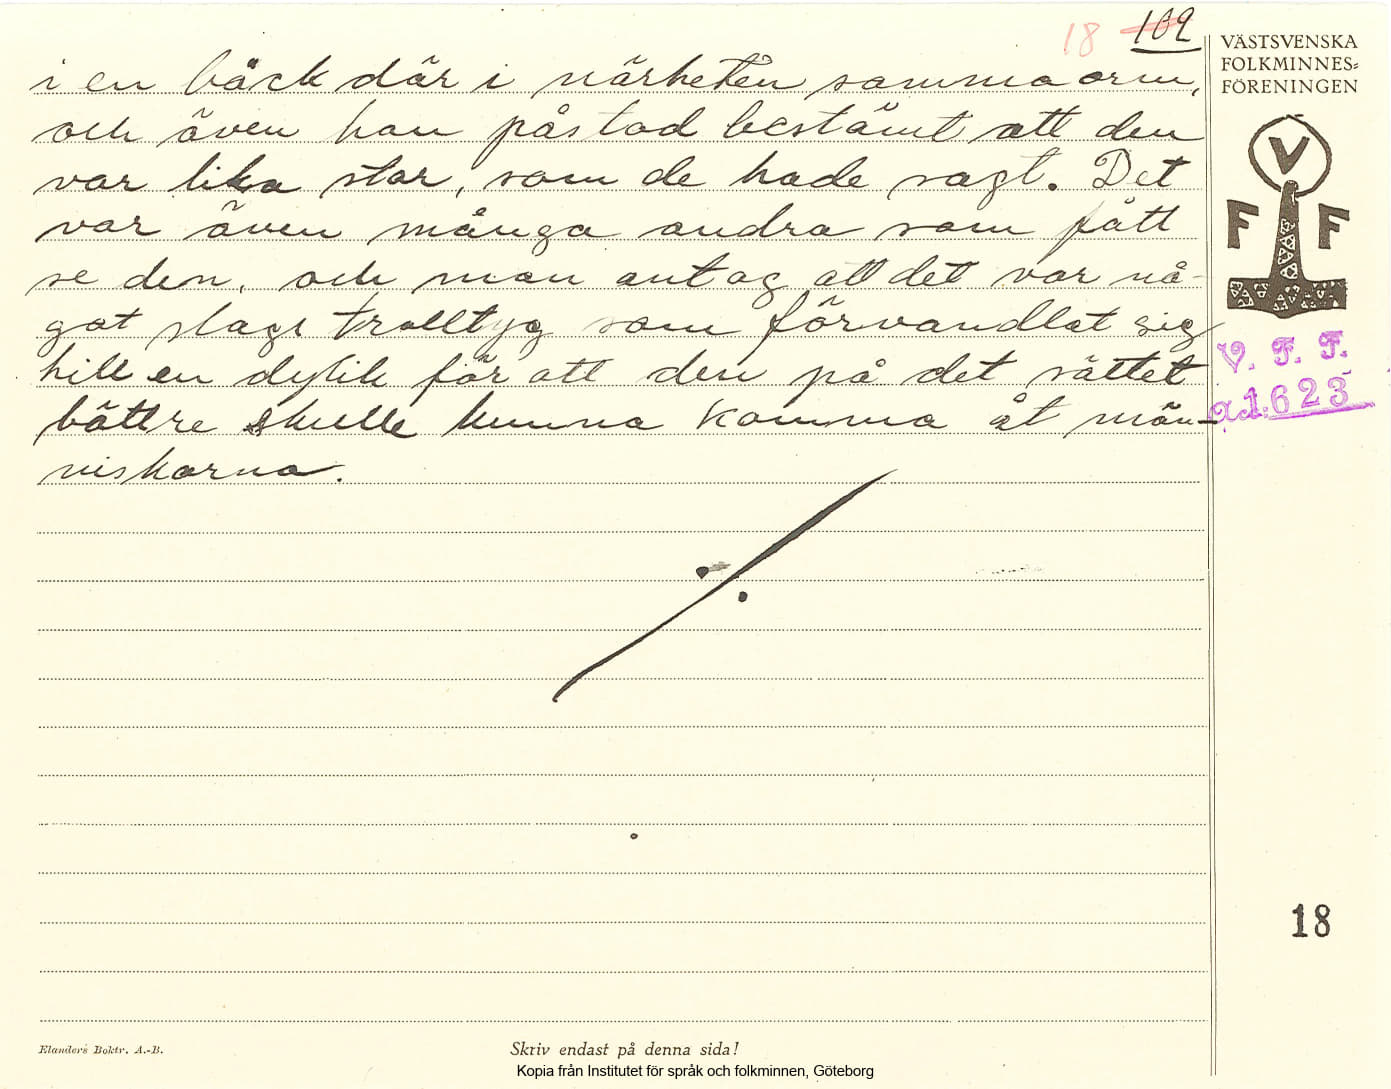 18 109
VÄSTSVENSKA
FOLKMINNES=
FÖRENINGEN
V
F F
V. F. F.
a.1623
i en bäck där i närheten samma orm,
och även han påstod bestämt att den
var lika stor, som de hade sagt. Det
var även många andra som fått
se den, och man antog att det var nå-
got slags trolltyg som förvandlat sig
till en dylik för att den på det sättet
bättre skulle kunna komma åt män-
niskorna.
18
Elanders Boktr. A.-B.
Skriv endast på denna sida!
Kopia från Institutet för språk och folkminnen, Göteborg